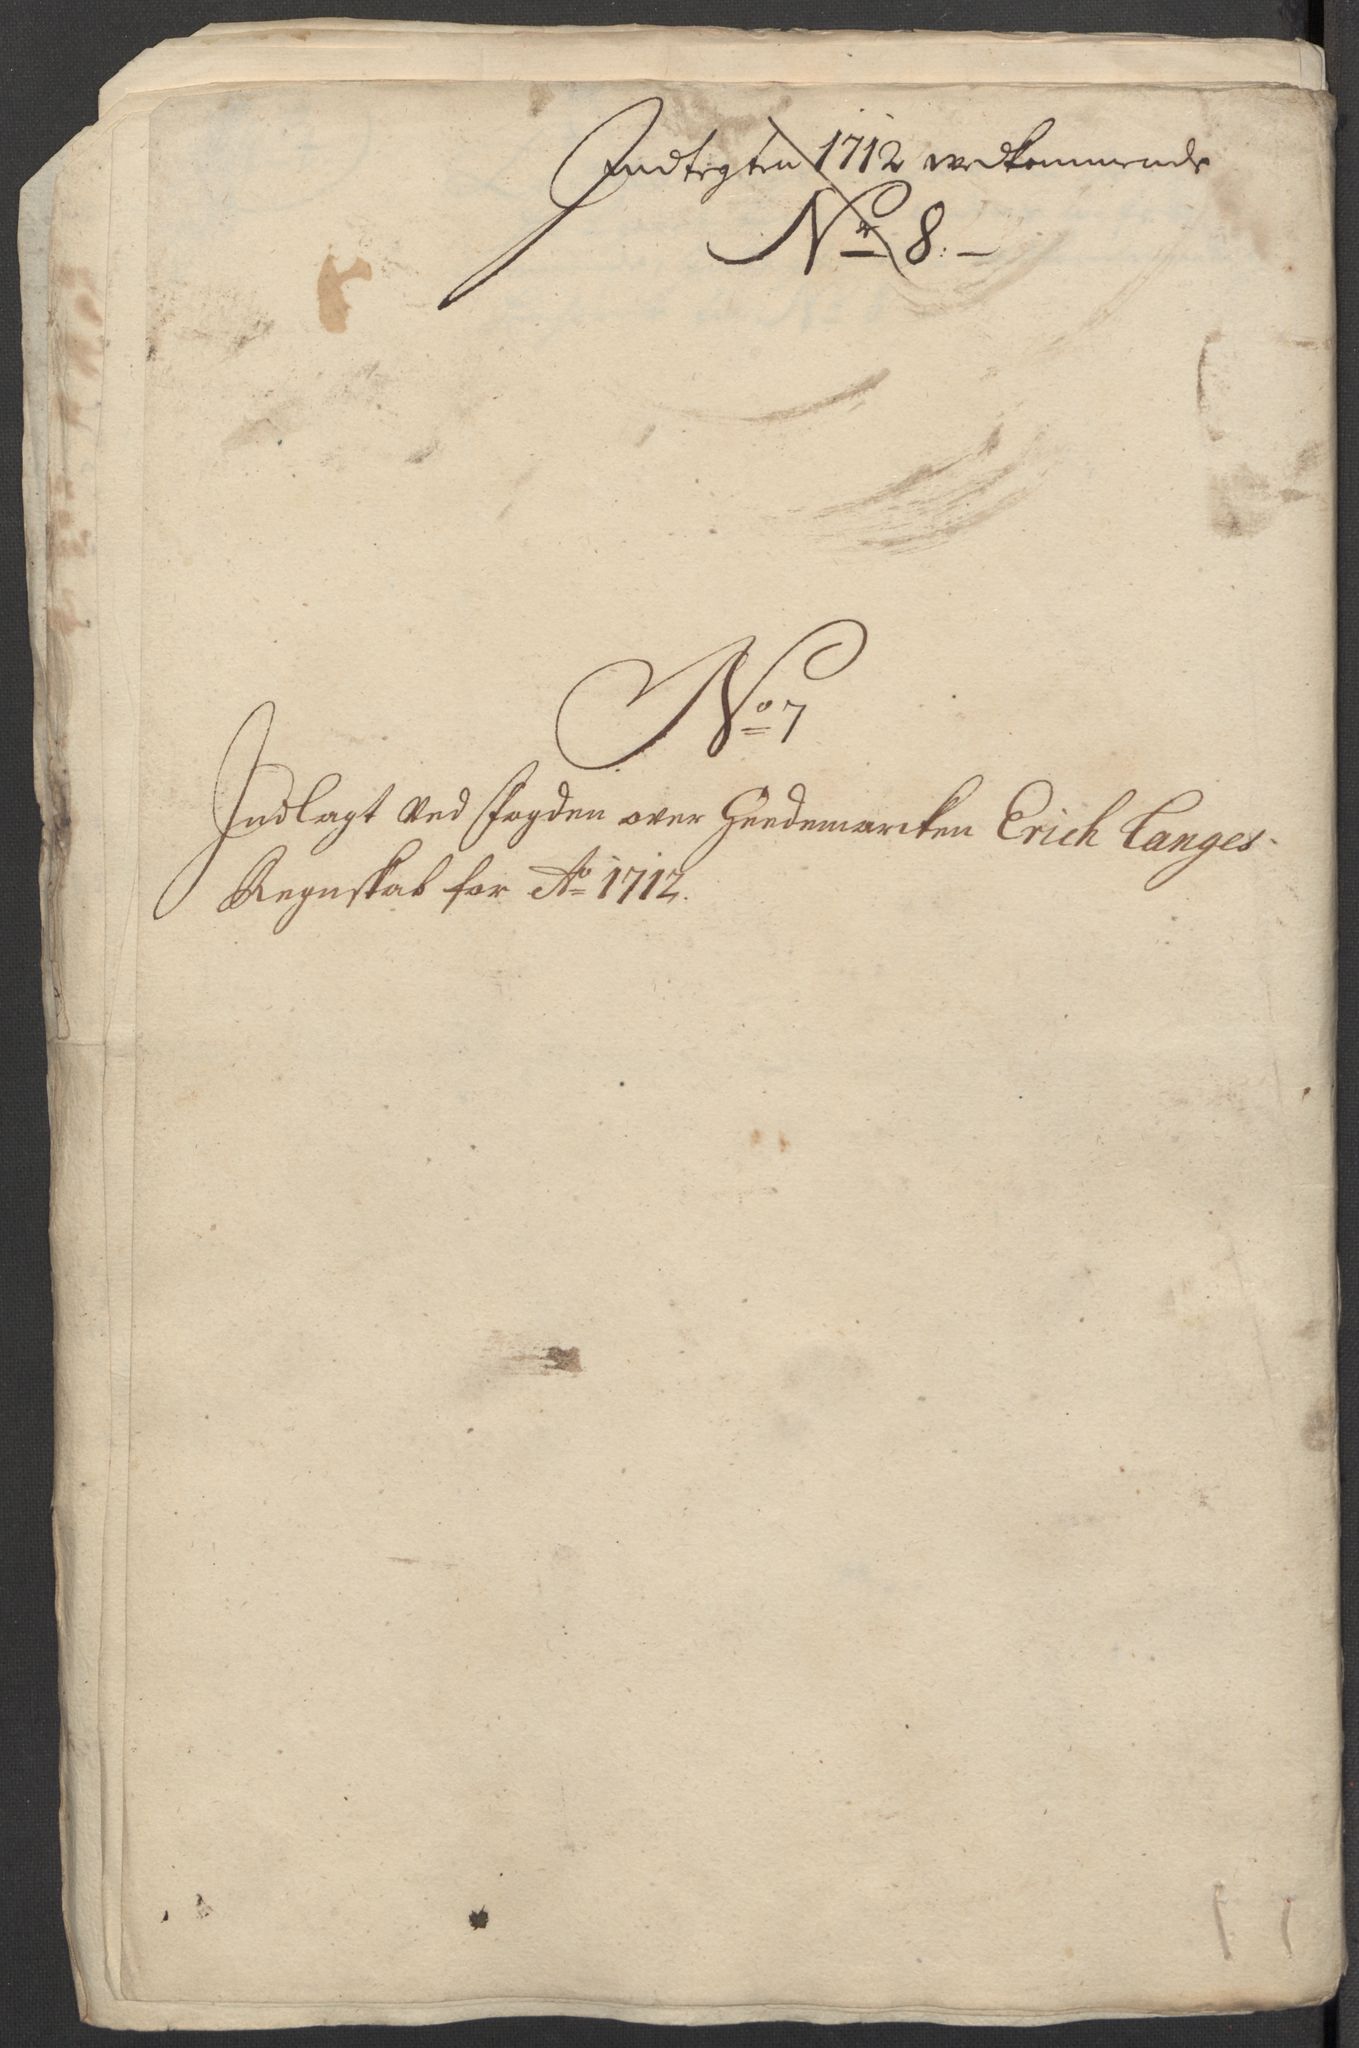 Indtegten 1712 vedkommende
No 8.
No 7
Indlagt ved Fogden over Heedemarcken Erich Langes
Regnskab for Ao 1712.